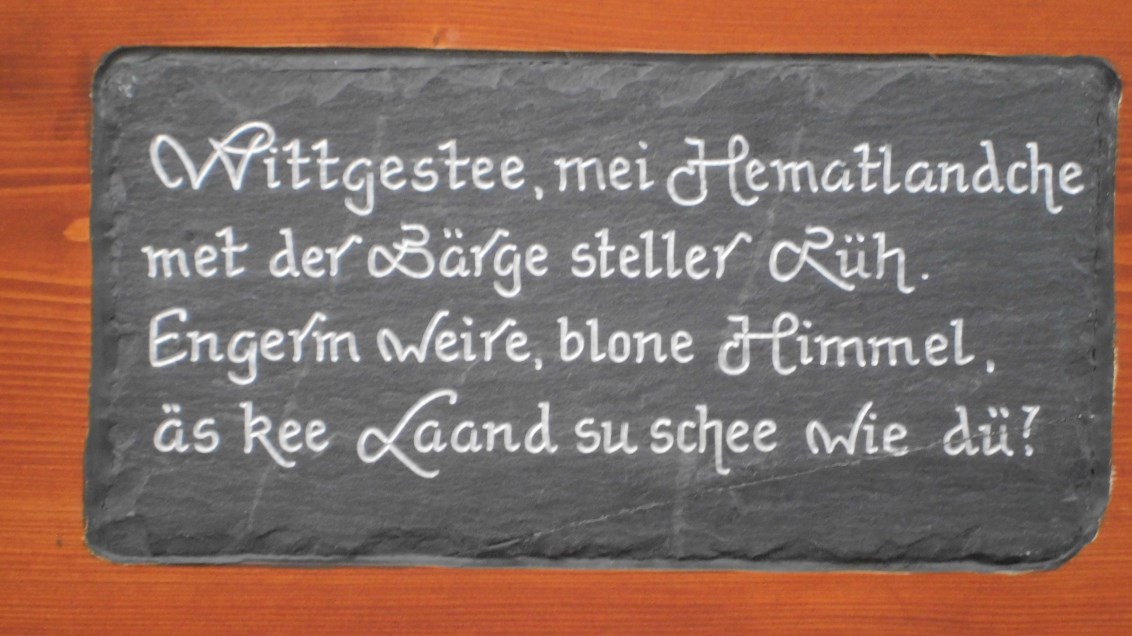 Wittgestee, mei Hematlandche
met der Bärge steller Rüh.
Engerm weire, blone Himmel,
äs kee Laand su schee wie dü?